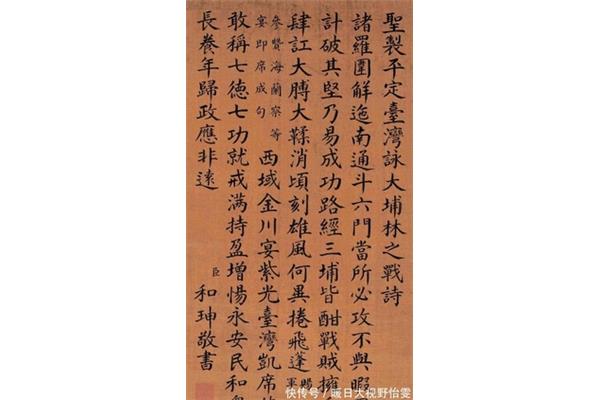 聖製平定臺灣詠大埔林之戰詩
諸羅圍解迤南通斗六門當所必攻不與暇
計破其堅乃易成功路經三埔皆酣戰賊擁
肆訌大膊大鞣消頃刻雄風何異捲飛蓬賜軍
參贊海蘭察等
宴即席成句
西域金川宴紫光臺灣凱席
敢稱七德七功就戒滿持盈增惕永安民和
長養年歸政應非遠
臣和珅敬書
快传号 / 暖日大视野怡雯